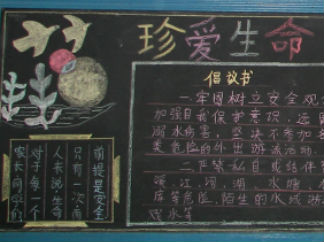 珍爱生命
倡议书
一.牢固树立安全观
加强自我保护意识，远
溺水病害，坚决不参加
类危险的外出游泳活动
二.严禁私自或结伴
溪、江、河、湖、水塘、水
库等危险，陌生的水域游
戏水等
前提是安全
只有一次而
人来说生命
对于每一个
家长同学们